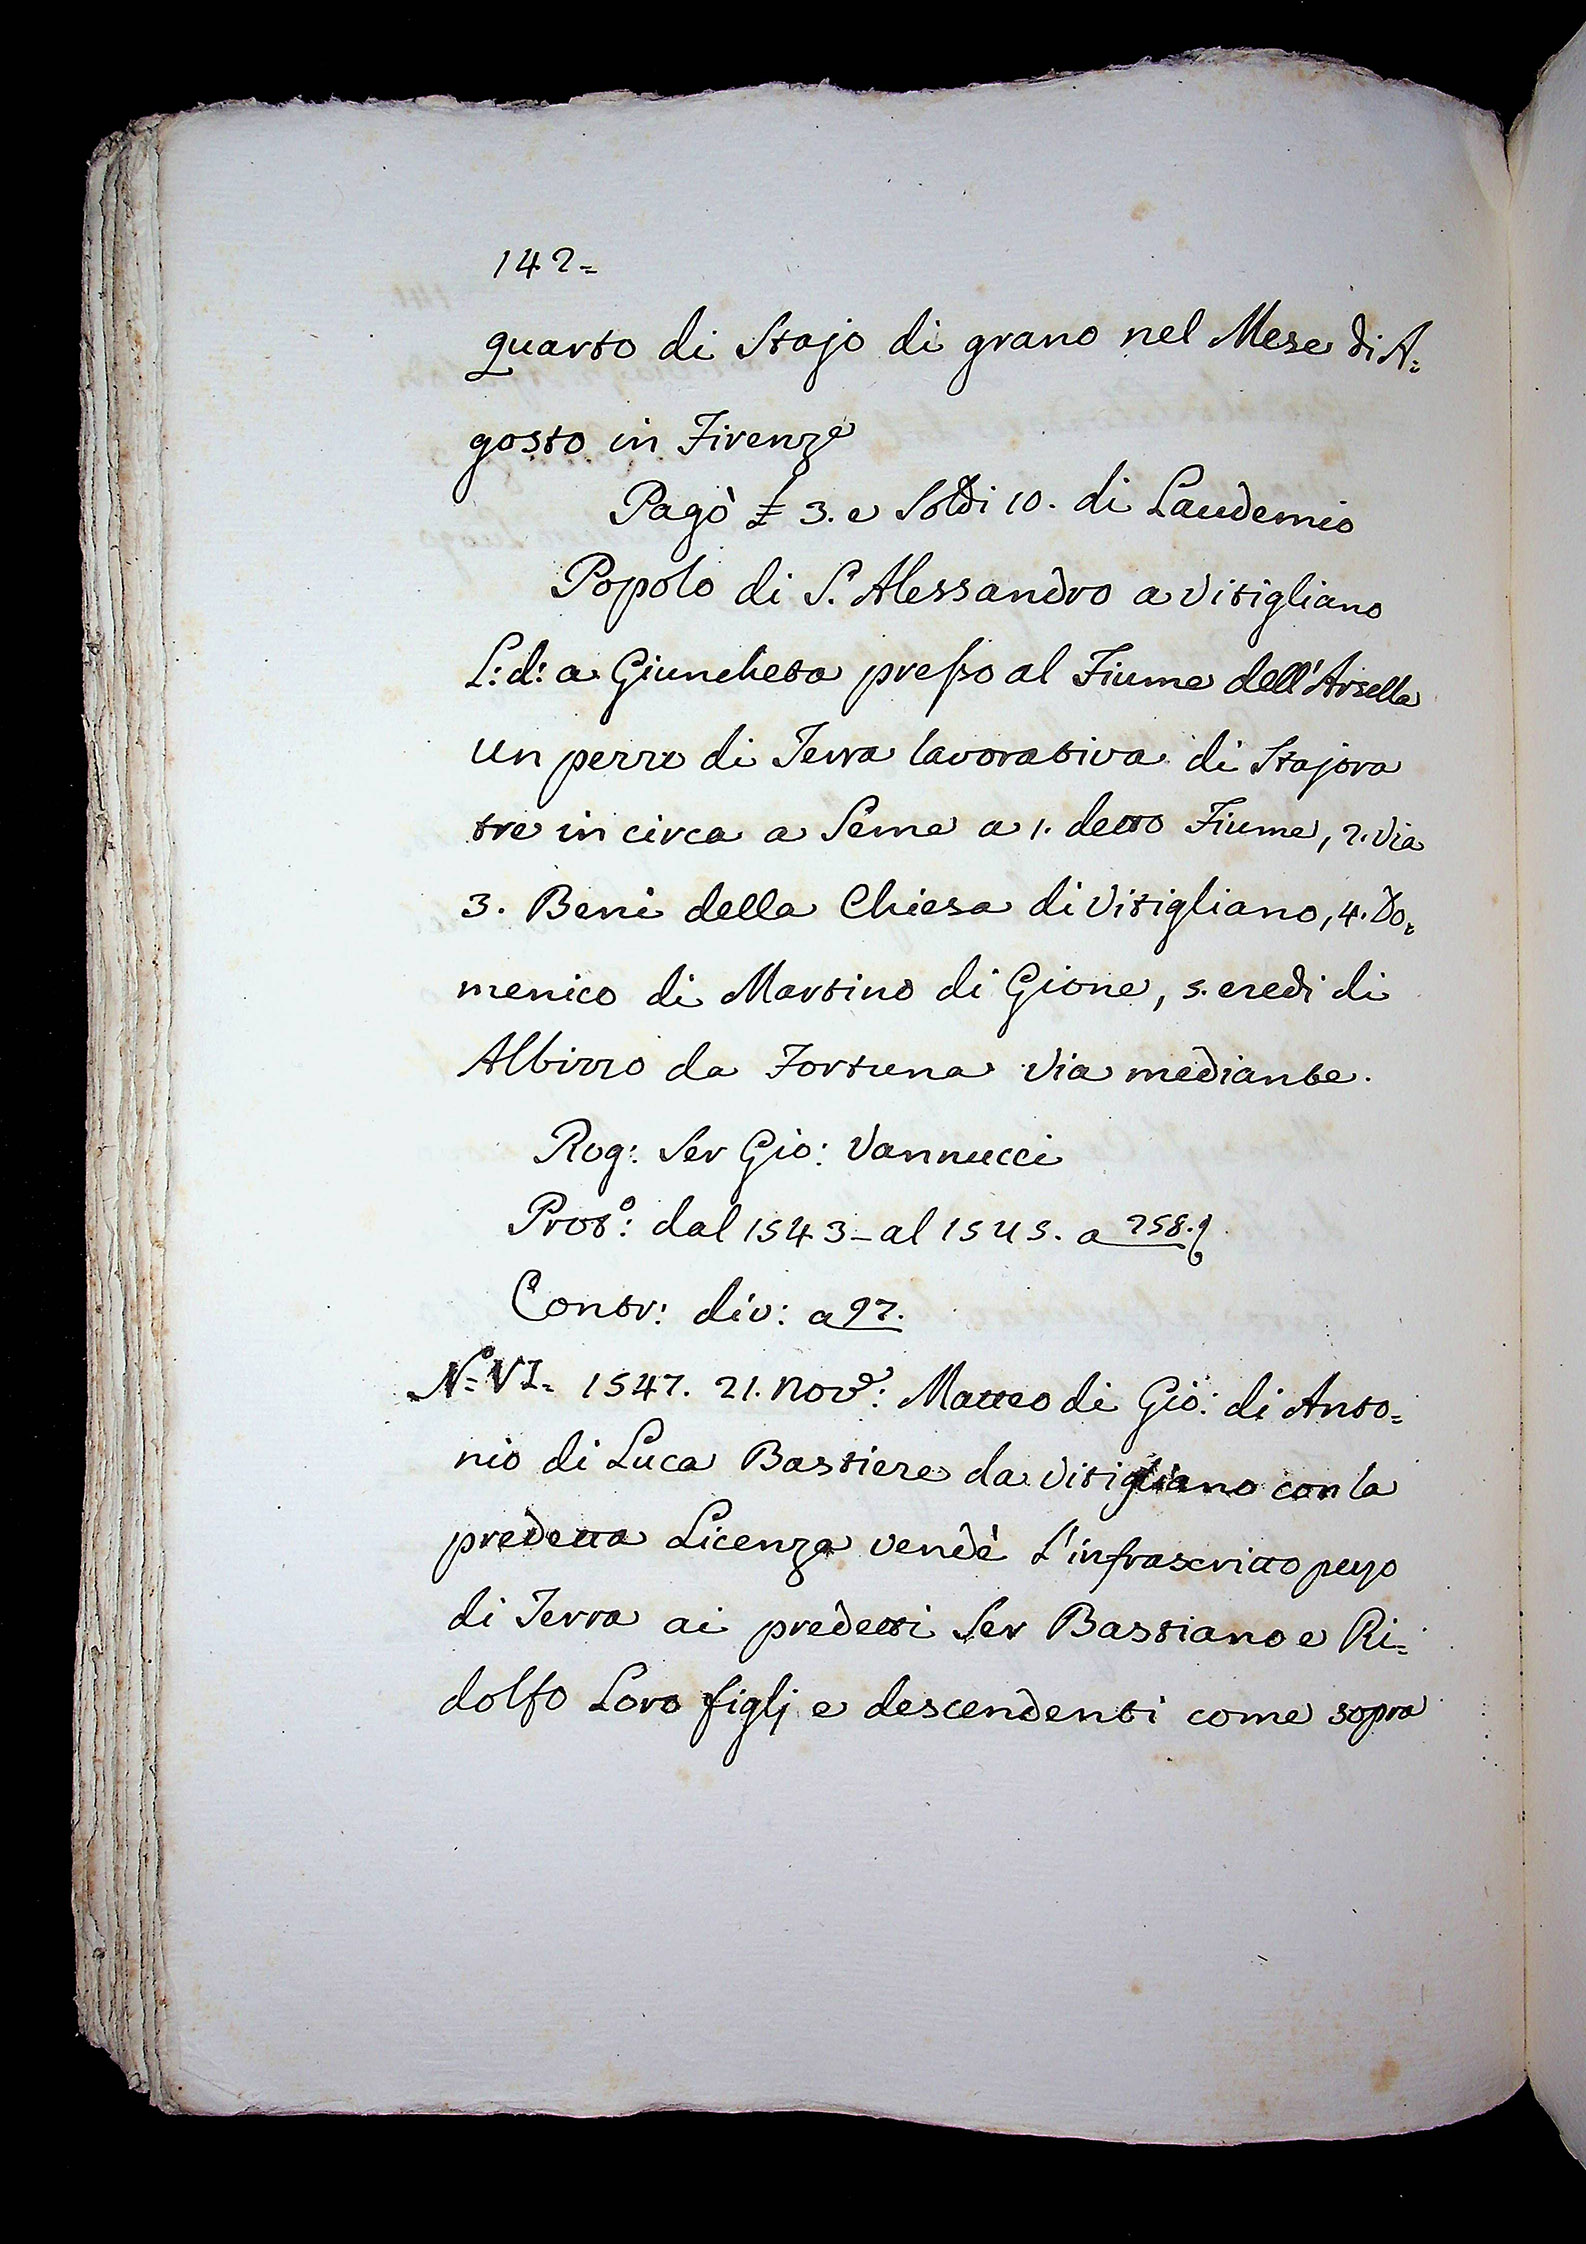 142=
quarto di Stajo di grano nel Mese di A=
gosto in Firenze
Pagò £ 3. e Soldi 10. di Laudemio
Popolo di S. Alessandro a Vitigliano
L: d: a Giuncheta presso al Fiume dell'Arsella
un pezzo di Terra lavorativa di Stajora
tre in circa a Seme a 1. detto Fiume, 2. Via
3. Beni della Chiesa di Vitigliano, 4. Do=
menico di Martino di Gione, 5. eredi di
Albizzo da Fortuna via mediante.
Rog: Ser Gio: Vannucci
Protº: dal 1543 - al 1545. a 258.
Contr: div: a 97.
Nº= VI= 1547. 21. Nove: Matteo di Gio: di Anto=
nio di Luca Bastiere da Vitigliano con la
predetta Licenza vendè L'infrascritto pezzo
di Terra ai predetti Ser Bastiano e Ri=
dolfo Loro figlj e descendenti come sopra